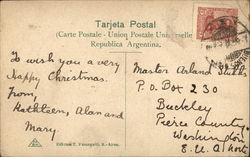 Tarjeta Postal
(Carte Postale - Union Postale Universelle)
Republica Argentina.
To wish you a very
Happy Christmas.
From,
Kathleen, Alan and
Mary
Master Arland
P.O. Box 230
Buckley
Pierce County,
Washington
Editores T. Fumagalli, B.-Aires.